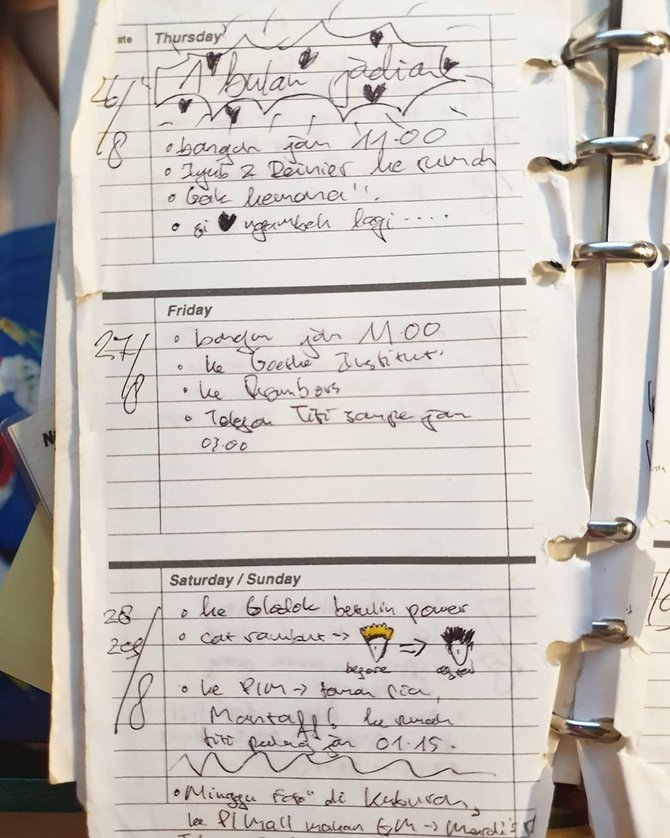 Thursday
26/8
1 bulan jadian
• bangun jam 11.00
• Iyub 2 Deinier ke rumah
• Gak kemana".
• si ♥ ngambek lagi.....
Friday
27/8
• bangun jam 11.00
• ke Goethe Institut.
• ke Prambors
• Telepon Titi sampe jam
03.00
Saturday / Sunday
28
29/8
• ke Glodok betulin power
• cat rambut ->
before after
• ke PIM ->
Mantaff! ke rumah
titi pulang jam 01.15.
• Minggu foto" di Kuburan,
ke PI Mall makan